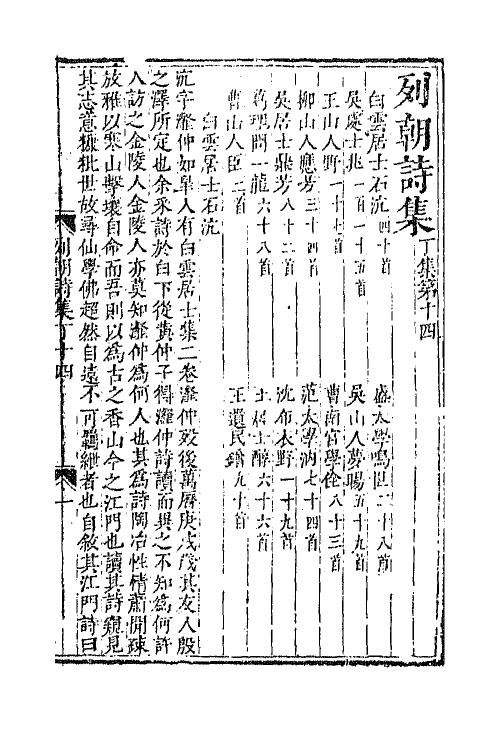 列朝詩集丁集第十四
白雲居士石沆四十首
盛太學鳴世二十八首
吳處士兆一百一十五首
吳山人夢暘五十九首
王山人野一十七首
曹南宮學佺八十三首
柳山人應芳三十四首
范太學汭七十四首
吳居士鼎芳八十二首
沈布衣野一十九首
葛理問一龍六十八首
王居士醇六十六首
曹山人臣二首
王遺民鏳九十首
白雲居士石沆
沆字瀣仲如臯人有白雲居士集二卷瀣仲歿後萬曆庚戌歲其友人殷
之澤所定也余采詩於白下從黃仲子得瀣仲詩讀而異之不知為何許
人訪之金陵人金陵人亦莫知瀣仲為何人也其為詩陶冶性情蕭閒疎
放雅以寒山擊壤自命而吾則以為古之香山今之江門也讀其詩窺見
其志意糠粃世故尋仙學佛超然自遠不可羈紲者也自敘其江門詩曰
列朝詩集丁十四
一